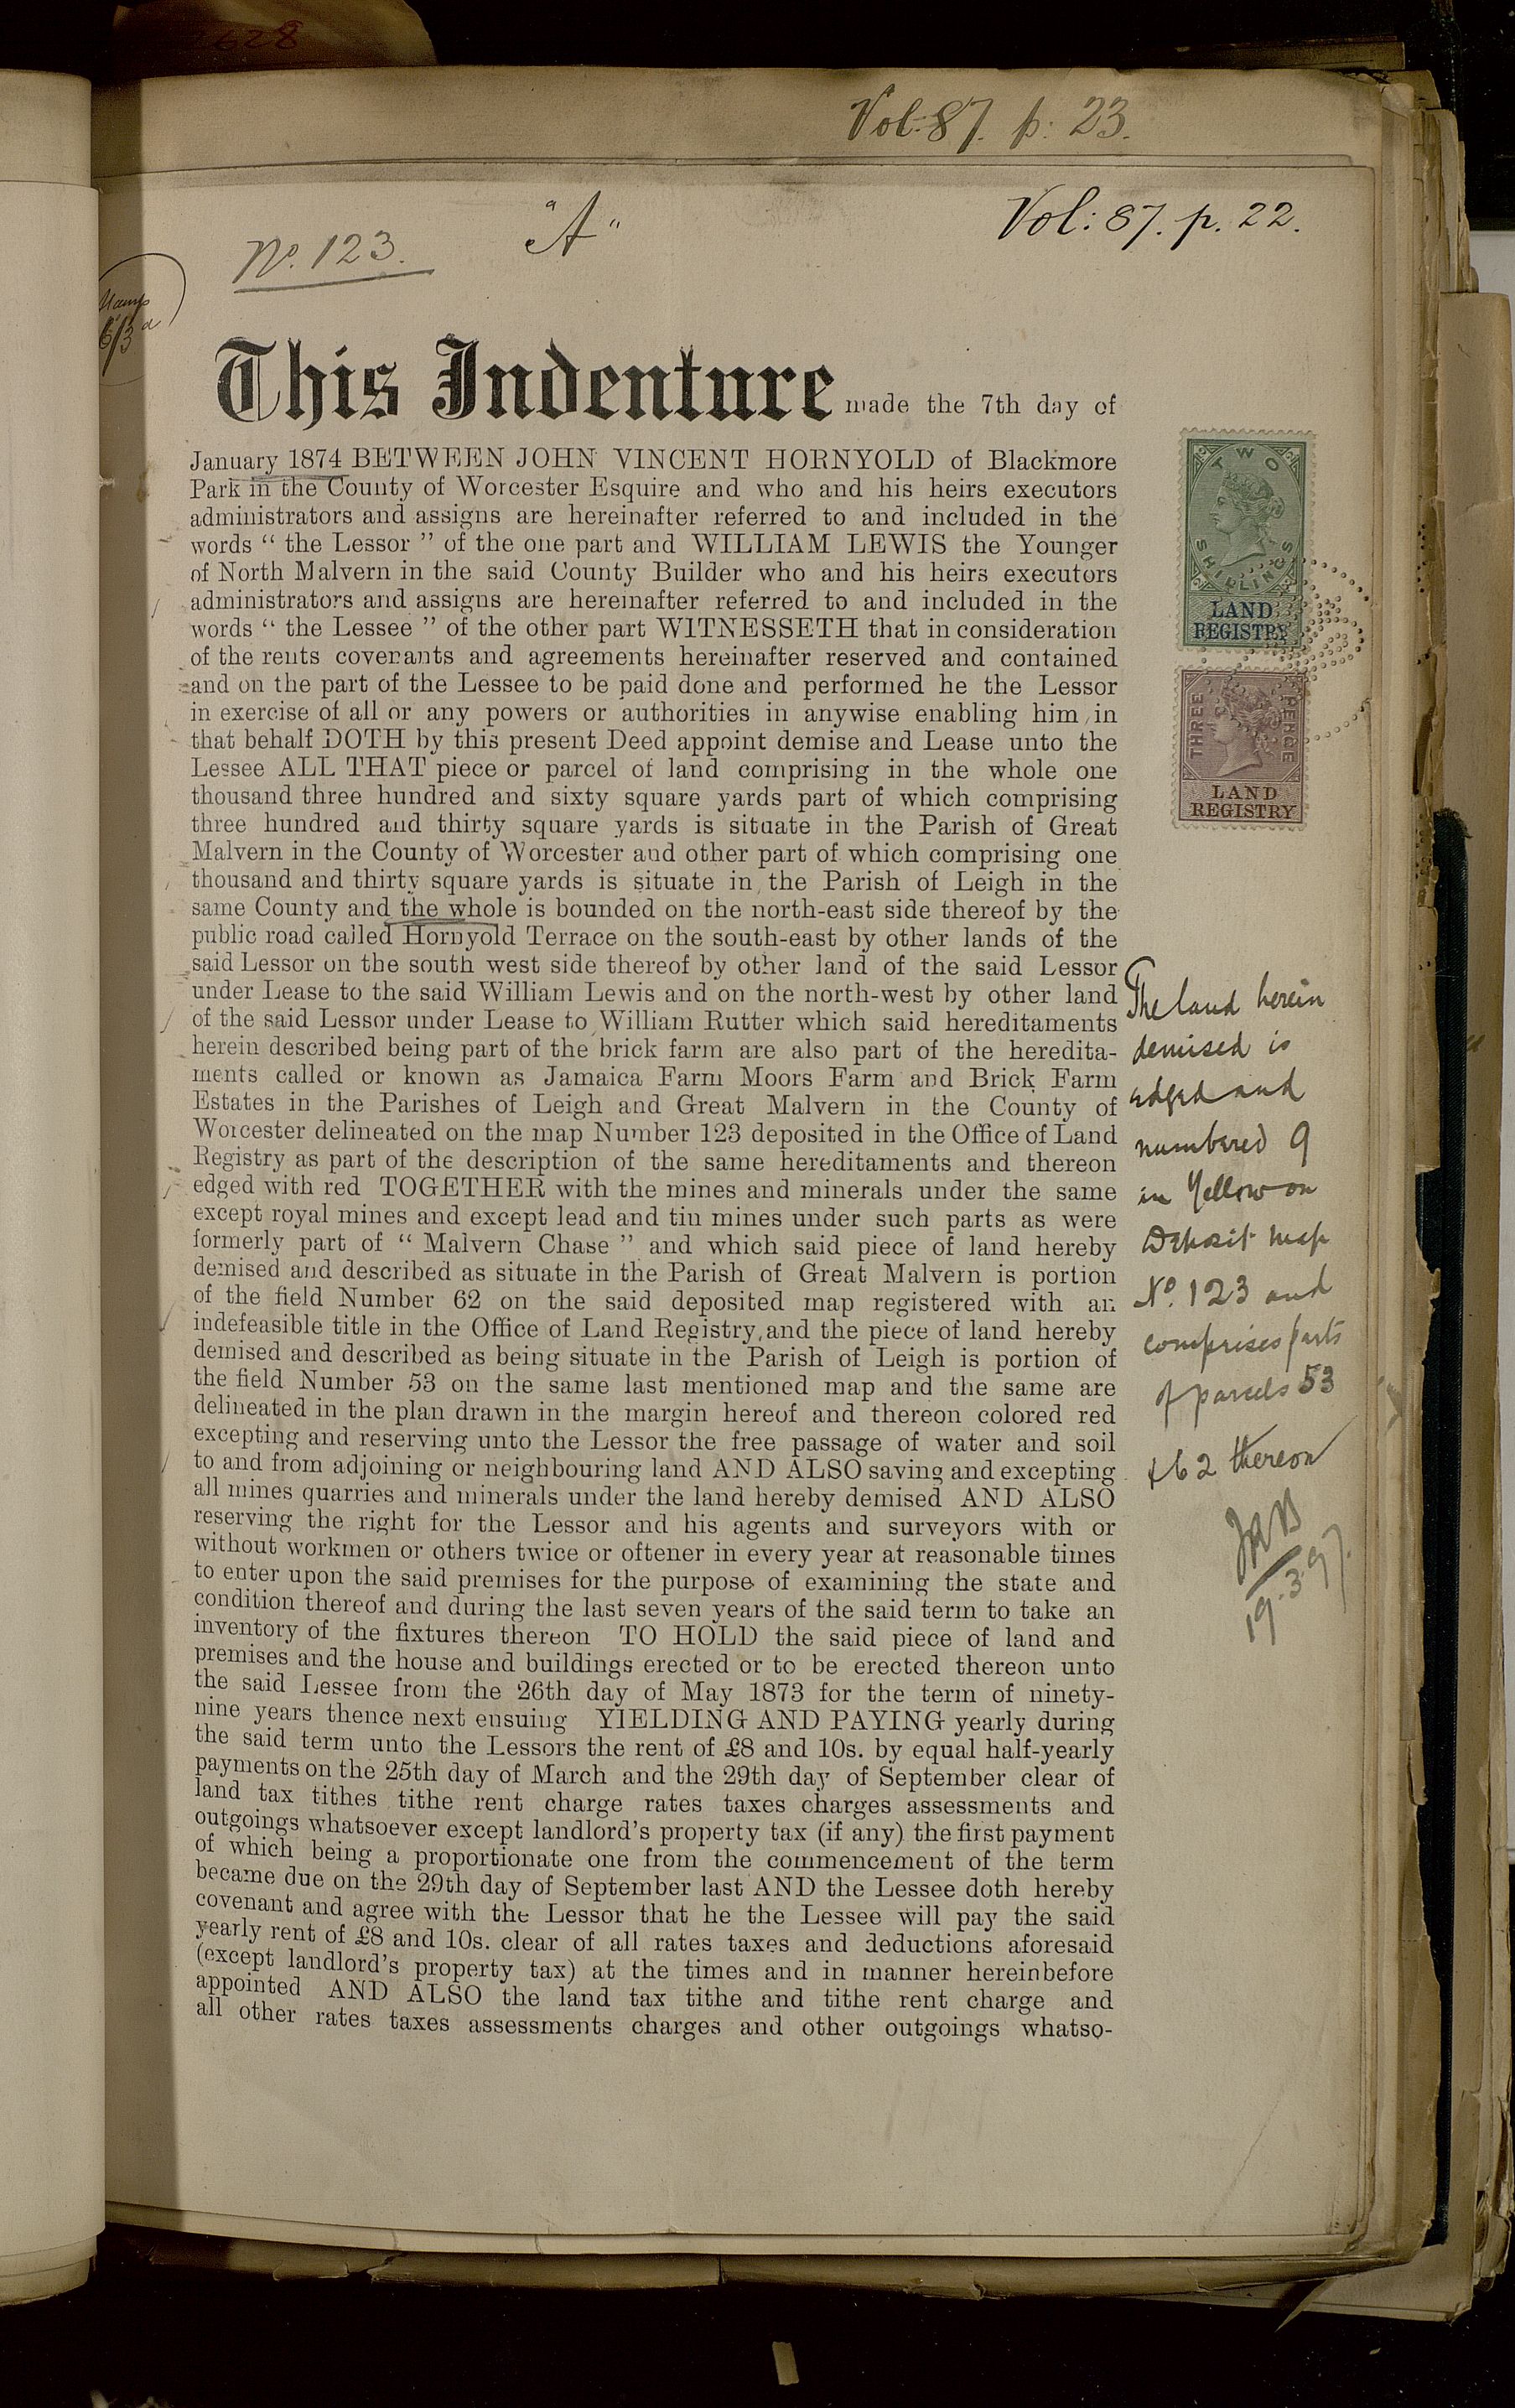 628
Vol: 87. p: 23.
"A"
Vol: 87. p. 22.
No. 123.
Stamp
6/3d
This Indenture made the 7th day of
January 1874 BETWEEN JOHN VINCENT HORNYOLD of Blackmore
Park in the County of Worcester Esquire and who and his heirs executors
administrators and assigns are hereinafter referred to and included in the
words “ the Lessor ” of the one part and WILLIAM LEWIS the Younger
of North Malvern in the said County Builder who and his heirs executors
administrators and assigns are hereinafter referred to and included in the
words “ the Lessee ” of the other part WITNESSETH that in consideration
of the rents covenants and agreements hereinafter reserved and contained
and on the part of the Lessee to be paid done and performed he the Lessor
in exercise of all or any powers or authorities in anywise enabling him in
that behalf DOTH by this present Deed appoint demise and Lease unto the
Lessee ALL THAT piece or parcel of land comprising in the whole one
thousand three hundred and sixty square yards part of which comprising
three hundred and thirty square yards is situate in the Parish of Great
Malvern in the County of Worcester and other part of which comprising one
thousand and thirty square yards is situate in the Parish of Leigh in the
same County and the whole is bounded on the north-east side thereof by the
public road called Hornyold Terrace on the south-east by other lands of the
said Lessor on the south west side thereof by other land of the said Lessor
under Lease to the said William Lewis and on the north-west by other land
of the said Lessor under Lease to William Rutter which said hereditaments
herein described being part of the brick farm are also part of the heredita-
ments called or known as Jamaica Farm Moors Farm and Brick Farm
Estates in the Parishes of Leigh and Great Malvern in the County of
Worcester delineated on the map Number 123 deposited in the Office of Land
Registry as part of the description of the same hereditaments and thereon
edged with red TOGETHER with the mines and minerals under the same
except royal mines and except lead and tin mines under such parts as were
formerly part of “ Malvern Chase ” and which said piece of land hereby
demised and described as situate in the Parish of Great Malvern is portion
of the field Number 62 on the said deposited map registered with an
indefeasible title in the Office of Land Registry, and the piece of land hereby
demised and described as being situate in the Parish of Leigh is portion of
the field Number 53 on the same last mentioned map and the same are
delineated in the plan drawn in the margin hereof and thereon colored red
excepting and reserving unto the Lessor the free passage of water and soil
to and from adjoining or neighbouring land AND ALSO saving and excepting
all mines quarries and minerals under the land hereby demised AND ALSO
reserving the right for the Lessor and his agents and surveyors with or
without workmen or others twice or oftener in every year at reasonable times
to enter upon the said premises for the purpose of examining the state and
condition thereof and during the last seven years of the said term to take an
inventory of the fixtures thereon TO HOLD the said piece of land and
premises and the house and buildings erected or to be erected thereon unto
the said Lessee from the 26th day of May 1873 for the term of ninety-
nine years thence next ensuing YIELDING AND PAYING yearly during
the said term unto the Lessors the rent of £8 and 10s. by equal half-yearly
payments on the 25th day of March and the 29th day of September clear of
land tax tithes tithe rent charge rates taxes charges assessments and
outgoings whatsoever except landlord’s property tax (if any) the first payment
of which being a proportionate one from the commencement of the term
became due on the 29th day of September last AND the Lessee doth hereby
covenant and agree with the Lessor that he the Lessee will pay the said
yearly rent of £8 and 10s. clear of all rates taxes and deductions aforesaid
(except landlord’s property tax) at the times and in manner hereinbefore
appointed AND ALSO the land tax tithe and tithe rent charge and
all other rates taxes assessments charges and other outgoings whatso-
TWO
SHILLINGS
LAND
REGISTRY
THREE
PENCE
LAND
REGISTRY
The land herein
demised is
edged and
numbered 9
in Yellow on
Deposit map
No. 123 and
comprises parts
of parcels 53
& 62 thereon
19.3.97.